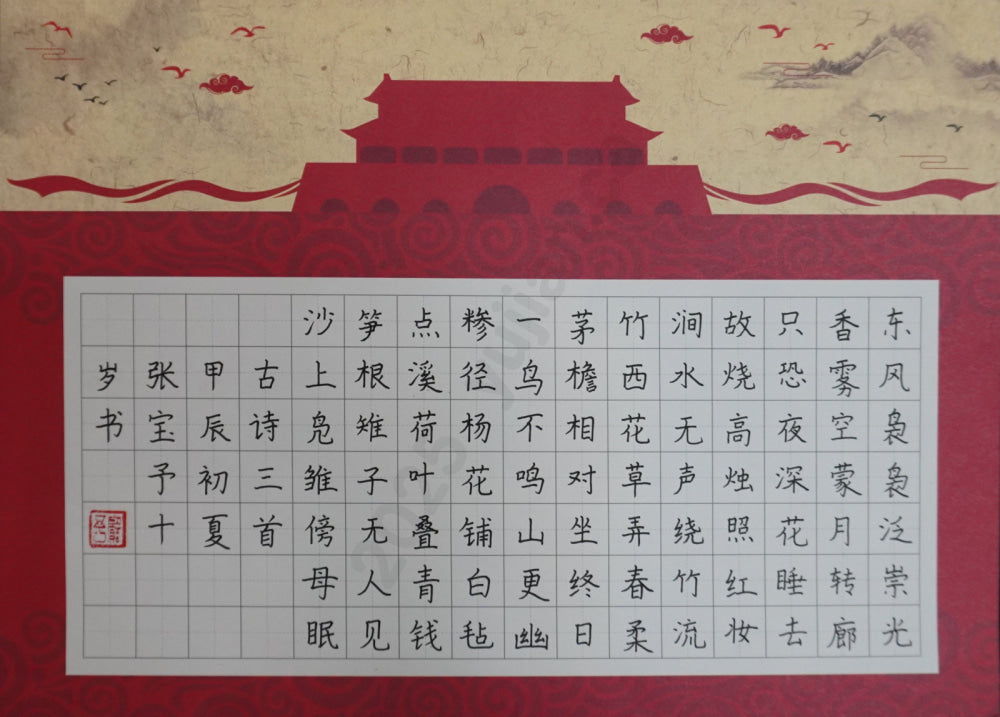 东风袅袅泛崇光
香雾空蒙月转廊
只恐夜深花睡去
故烧高烛照红妆
涧水无声绕竹流
竹西花草弄春柔
茅檐相对坐终日
一鸟不鸣山更幽
糁径杨花铺白毡
点溪荷叶叠青钱
笋根雉子无人见
沙上凫雏傍母眠
古诗三首
甲辰初夏
张宝予十
岁书
2025